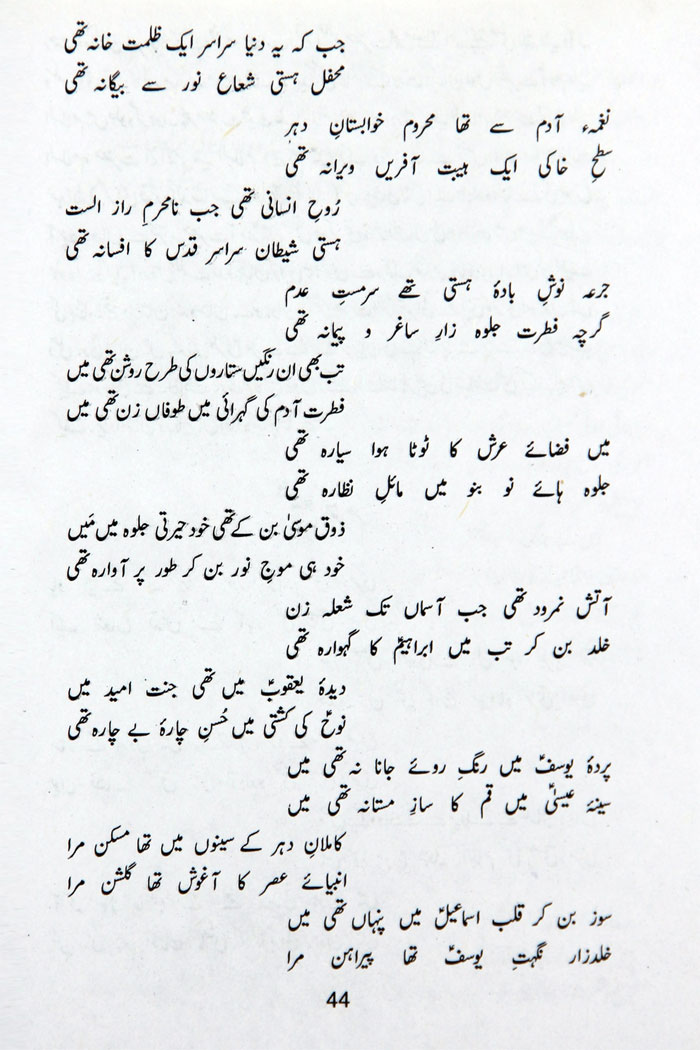 جب کہ یہ دنیا سراسر ایک ظلمت خانہ تھی
محفل ہستی شعاع نور سے بیگانہ تھی
نغمہء آدم سے تھا محروم خوابستانِ دہر
سطحِ خاکی ایک ہیبت آفریں ویرانہ تھی
رُوحِ انسانی تھی جب نامحرمِ راز الست
ہستی شیطان سراسر قدس کا افسانہ تھی
جرعہ نوشِ بادۂ ہستی تھے سرمستِ عدم
گرچہ فطرت جلوہ زارِ ساغر و پیمانہ تھی
تب بھی ان رنگیں ستاروں کی طرح روشن تھی میں
فطرت آدم کی گہرائی میں طوفاں زن تھی میں
میں فضائے عرش کا ٹوٹا ہوا سیارہ تھی
جلوہ ہائے نو بنو میں مائلِ نظارہ تھی
ذوق موسیٰ بن کے تھی خود حیرتی جلوہ میں مَیں
خود ہی موجِ نور بن کر طور پر آوارہ تھی
آتش نمرود تھی جب آسماں تک شعلہ زن
خلد بن کر تب میں ابراہیمؑ کا گہوارہ تھی
دیدۂ یعقوبؑ میں تھی جنت امید میں
نوحؑ کی کشتی میں حُسنِ چارۂ بے چارہ تھی
پردۂ یوسفؑ میں رنگِ روئے جانا نہ تھی میں
سینۂ عیسیٰؑ میں قم کا سازِ مستانہ تھی میں
کاملانِ دہر کے سینوں میں تھا مسکن مرا
انبیائے عصر کا آغوش تھا گلشن مرا
سوز بن کر قلب اسماعیلؑ میں پنہاں تھی میں
خلدزار نگہتِ یوسفؑ تھا پیراہن مرا
44